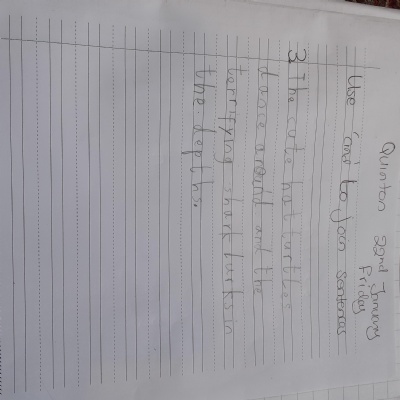 Quinton 22nd January
Friday
Use 'and' to join sentences
3. The cute hat turtles
dance around and the
terrifying shark lurks in
the depths.